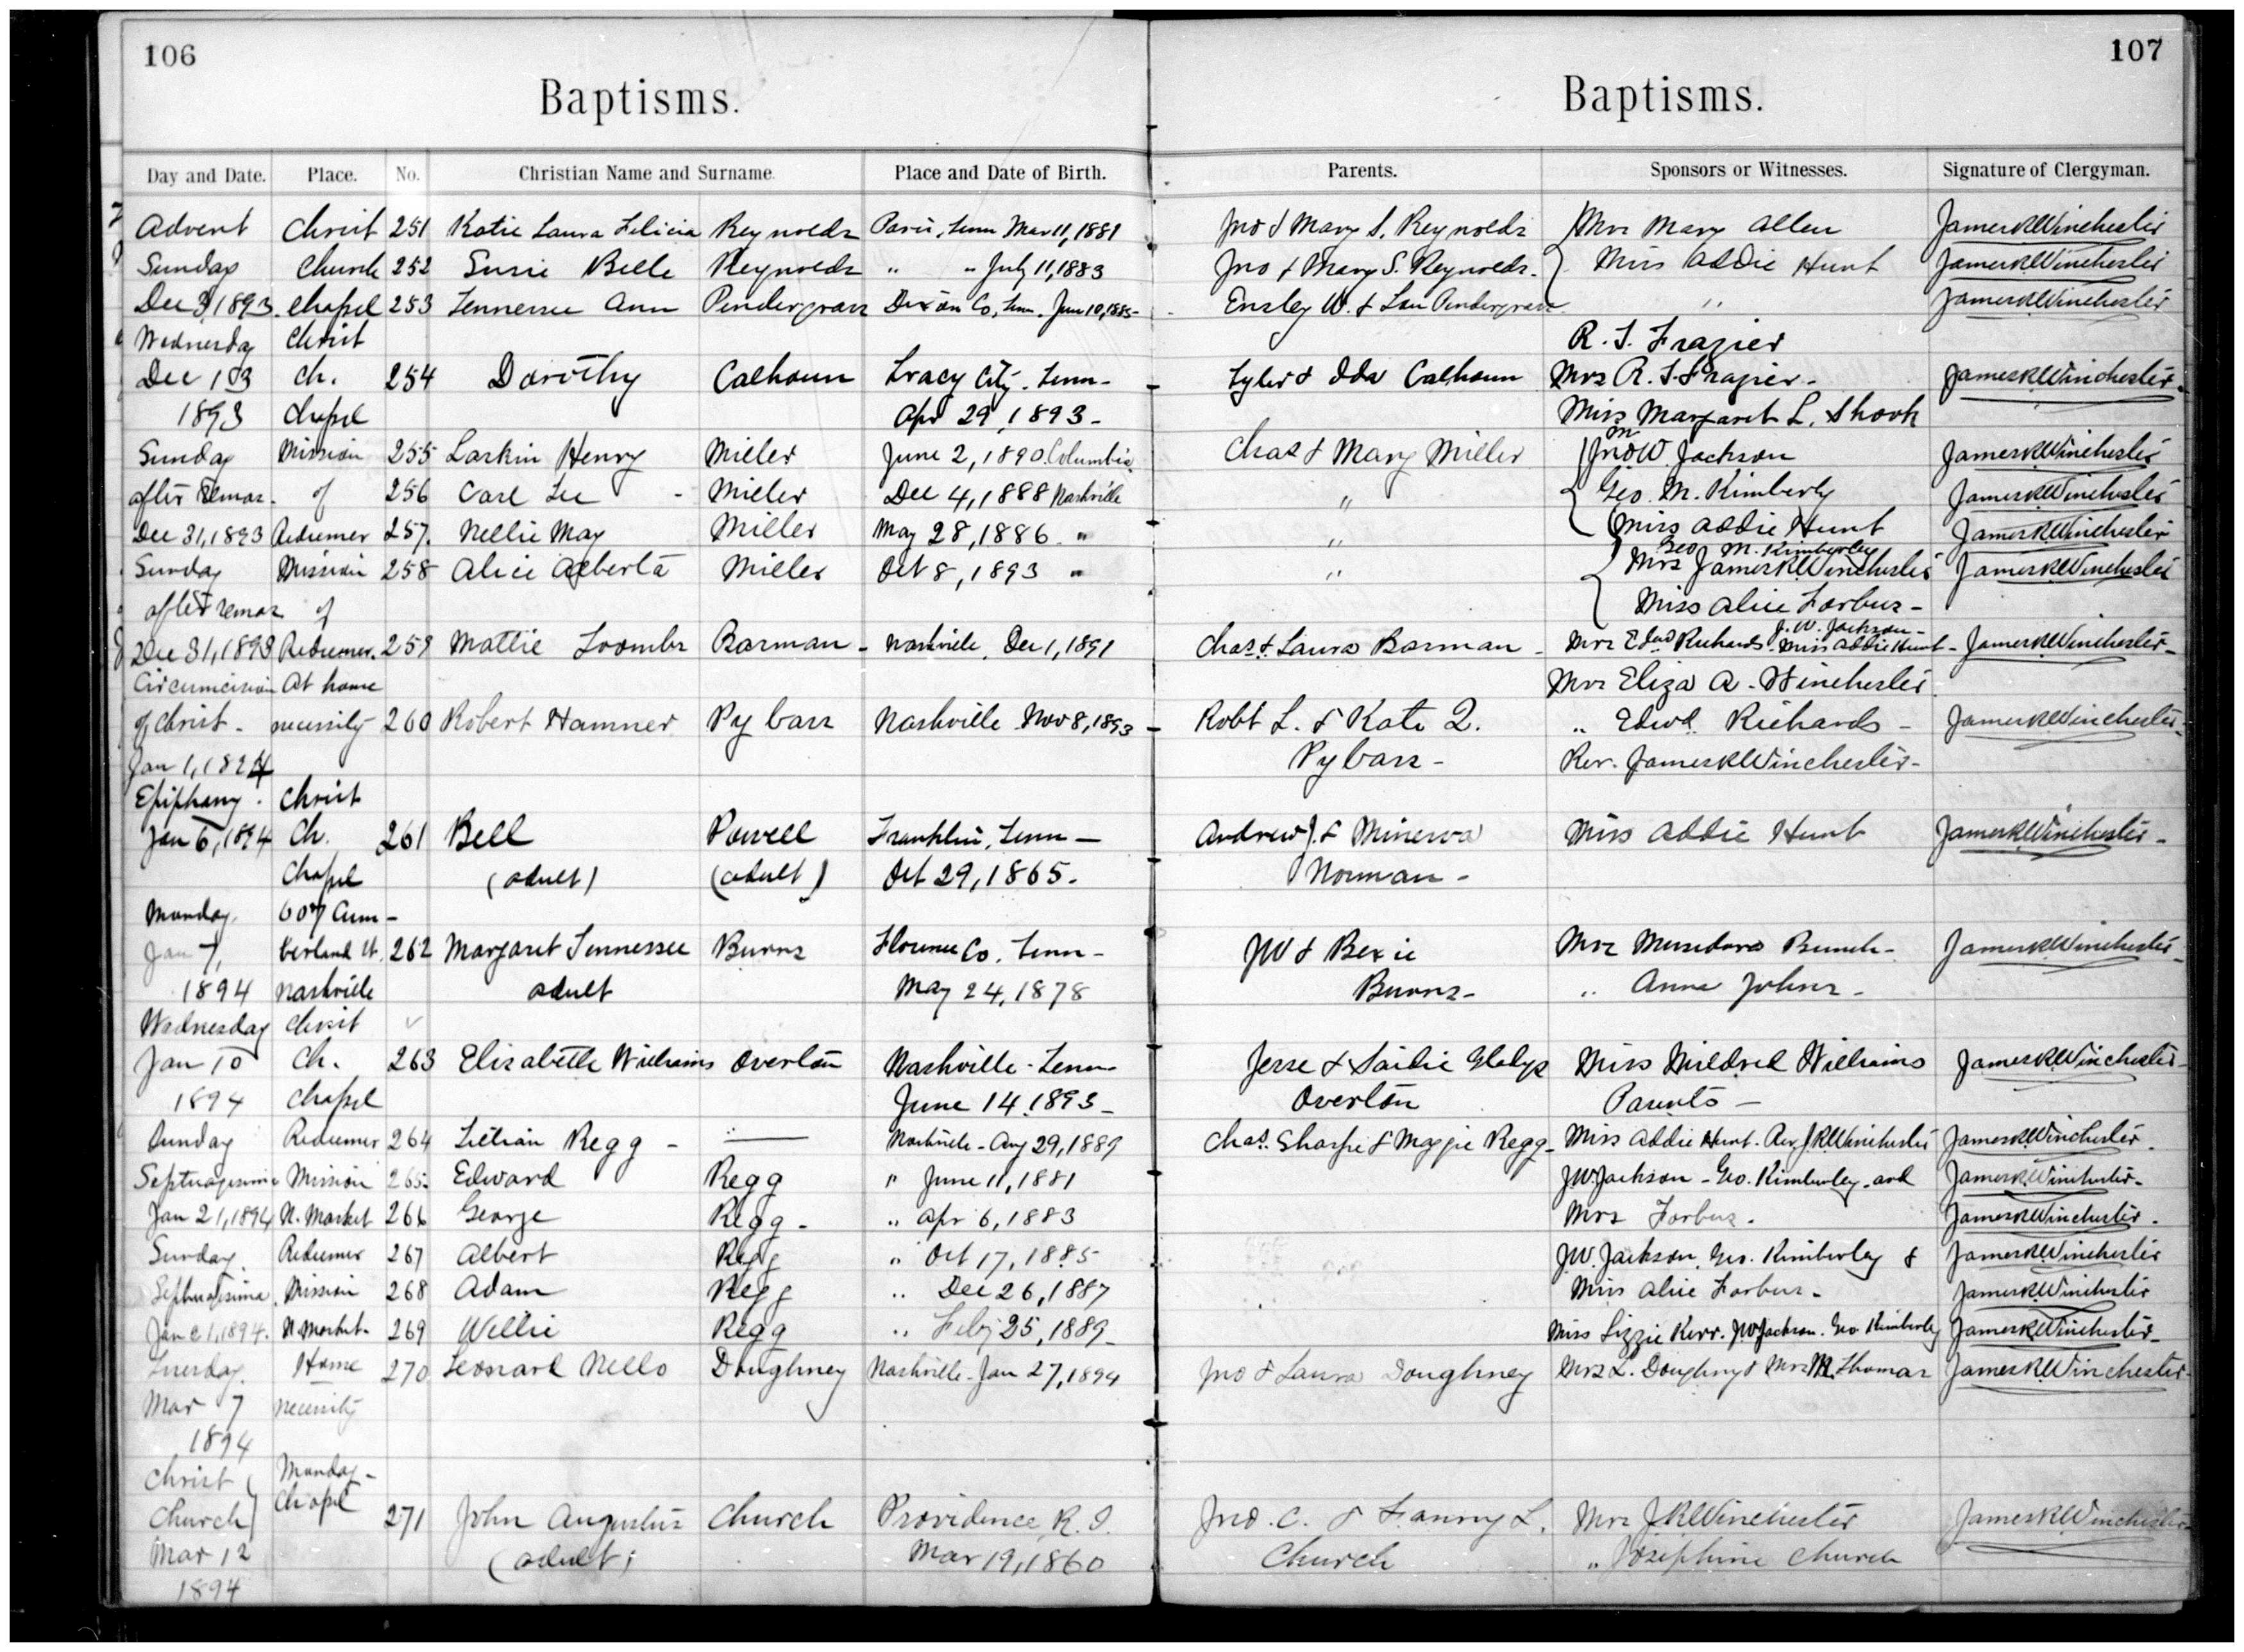 106
107
Baptisms.
Baptisms.
Day and Date. Place. No. Christian Name and Surname. Place and Date of Birth. Parents. Sponsors or Witnesses. Signature of Clergyman.
Advent Christ 251 Katie Laura Felicia Reynolds Paris, Tenn Mar 11, 1881 Jno & Mary S. Reynolds Mrs Mary Allen James R Winchester
Sunday Church 252 Susie Belle Reynolds " " July 11, 1883 Jno & Mary S. Reynolds. Miss Addie Hunt James R Winchester
Dec 3, 1893. Chapel 253 Tennessee Ann Pendergrass Dixon Co, Tenn. June 10, 1885- Ensley W. & Lou Pendergrass " James R Winchester
Wednesday Christ R. T. Frazier
Dec 13 Ch. 254 Dorothy Calhoun Tracy City. Tenn- Tyler & Ida Calhoun Mrs R. T. Frazier- James R Winchester-
1893 Chapel Apr 29, 1893- Miss Margaret L. Shook
Sunday Mission 255 Larkin Henry Miller June 2, 1890. Columbia Chas & Mary Miller Jno W Jackson James R Winchester
after Xmas. of 256 Carl Lee - Miller Dec 4, 1888 Nashville " Geo. M. Kimberly James R Winchester
Dec 31, 1893 Redeemer 257. Nellie May Miller May 28, 1886 " " Miss Addie Hunt James R Winchester
Geo M. Kimberley
Sunday Mission 258 Alice Alberta Miller Oct 8, 1893 " " Mrs James R Winchester James R Winchester
after Xmas of Miss Alice Forbus-
J. W. Jackson-
Dec 31, 1893 Redeemer. 259 Mattie Toombs Barman- Nashville. Dec 1, 1891 Chas. & Laura Barman- Mrs Edwd Richards. Miss Addie Hunt- James R Winchester-
Circumcision At home Mrs Eliza A. Winchester
of Christ- necessity 260 Robert Hamner Pybass Nashville Nov 8, 1893- Robt L. & Kate Q. " Edwd Richards- James R Winchester-
Jan 1, 1894 Pybass- Rev. James R Winchester-
Epiphany. Christ
Jan 6, 1894 Ch. 261 Bell Powell Franklin, Tenn- Andrew J. & Minerva Miss Addie Hunt James R Winchester-
Chapel (adult) (adult) Oct 29, 1865. Norman-
Monday, 607 Cum-
Jan 7, berland St. 262 Margaret Tennessee Burns Florence Co. Tenn- JW & Bexie Mrs Mundora Bunch- James R Winchester-
1894 Nashville adult May 24, 1878 Burns- " Anna Johns-
Wednesday Christ
Jan 10 Ch. 263 Elizabeth Williams Overton Nashville. Tenn- Jesse & Saidie Gladys Miss Mildred Williams James R Winchester-
1894 Chapel June 14. 1893- Overton Parents-
Sunday Redeemer 264 Lillian Regg - Nashville- Aug 29, 1889 Chas. Sharpe & Maggie Regg- Miss Addie Hunt. Rev J R Winchester James R Winchester.
Septuagesima Mission 265. Edward Regg " June 11, 1881 J W Jackson- Geo. Kimberley. and James R Winchester-
Jan 21, 1894 N. Market 266 George Regg- " Apr 6, 1883 Mrs Forbus. James R Winchester.
Sunday Redeemer 267 Albert Regg " Oct 17, 1885 J.W. Jackson, Geo. Kimberley & James R Winchester
Septuagesima. Mission 268 Adam Regg " Dec 26, 1887 Miss Alice Forbus- James R Winchester
Jan 21, 1894. N Market- 269 Willie Regg " Feby 25, 1889- Miss Lizzie Kerr. J W Jackson. Geo Kimberley James R Winchester-
Tuesday. Home 270 Leonard Nello Doughney Nashville- Jan 27, 1894 Jno & Laura Doughney Mrs L. Doughney & Mrs M. Thomas James R Winchester-
Mar 7 necessity
1894
Christ Monday-
Church Chapel 271 John Augustus Church Providence, R. I. Jno. C. & Fanny L. Mrs J R Winchester James R Winchester-
Mar 12 (adult) Mar 19, 1860 Church " Josephine Church
1894